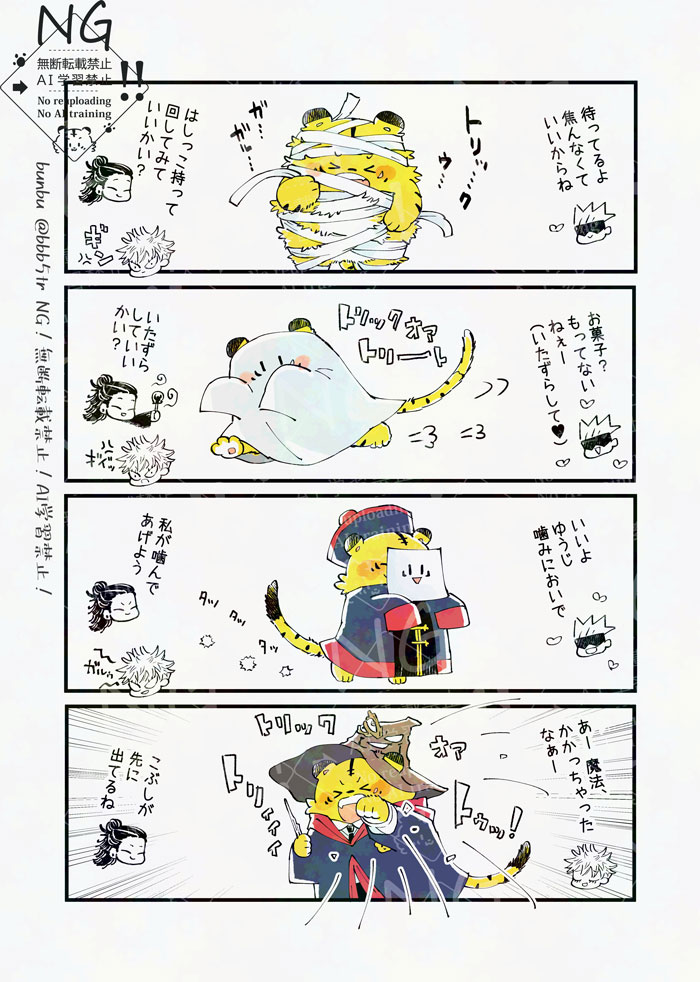 NG
無断転載禁止
AI学習禁止
!!
No reuploading
No AI training
bunbu @bbb5tr NG! 無断転載禁止! AI学習禁止!
待ってるよ
焦んなくて
いいからね
トリッ…ク
ゥ…
ガ…
ガル…
はしっこ持って
回してみて
いいかい?
お菓子?
もってない
ねぇー
(いたずらして♥)
トリックオア
トリート
いたずら
していい
かい?
いいよ
ゆうじ
噛みにおいで
タッ タッ タッ
私が噛んで
あげよう
ガルゥ
あー魔法、
かかっちゃった
なぁー
トリック
オァ
トリィィィ
トゥッ!
こぶしが
先に
出てるね